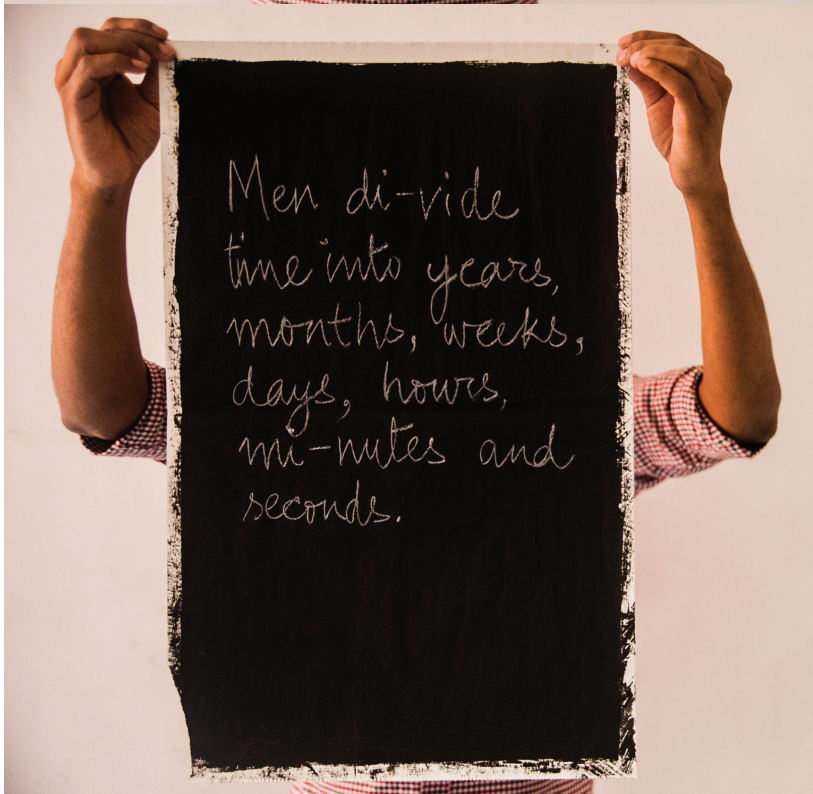 Men di-vide
time into years,
months, weeks,
days, hours,
mi-nutes and
seconds.